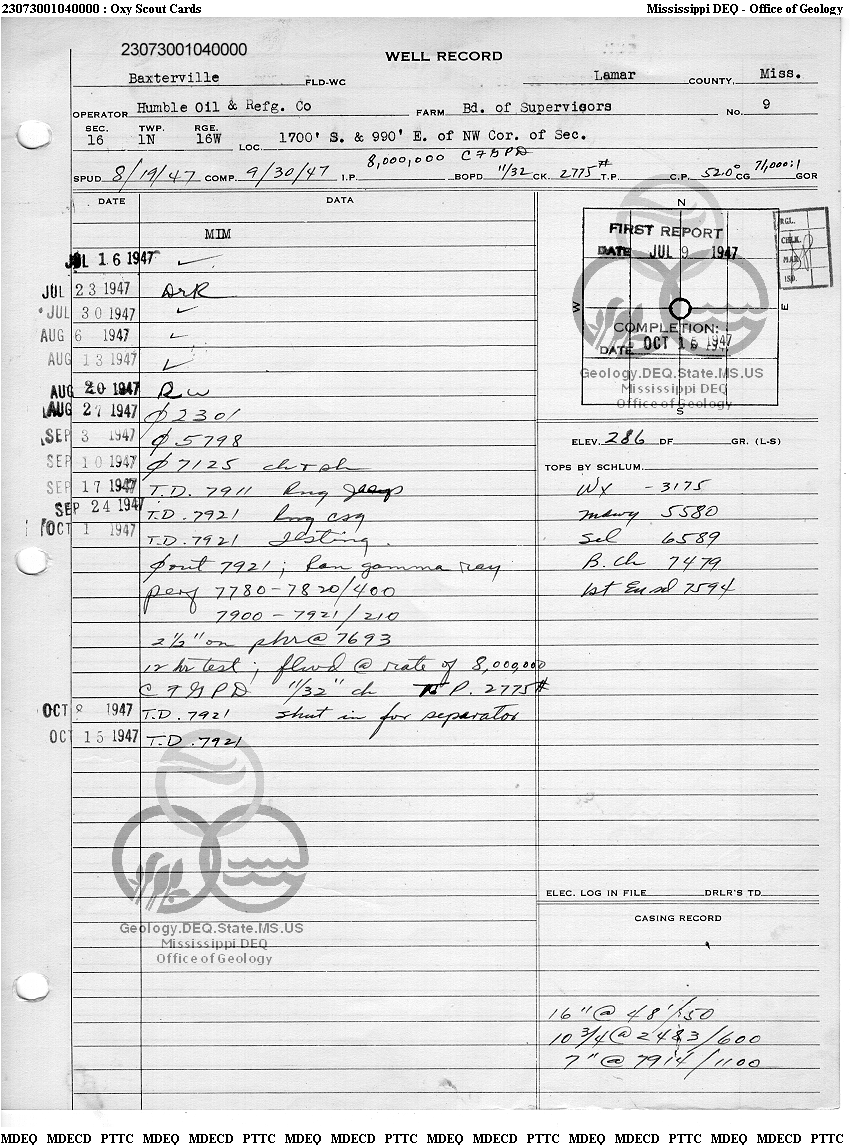 23073001040000 : Oxy Scout Cards Mississippi DEQ - Office of Geology
23073001040000
WELL RECORD
Baxterville FLD-WC Lamar COUNTY, Miss.
OPERATOR Humble Oil & Refg. Co FARM Bd. of Supervisors No. 9
SEC. TWP. RGE.
16 1N 16W LOC. 1700' S. & 990' E. of NW Cor. of Sec.
SPUD 8/19/47 COMP. 9/30/47 I.P. 8,000,000 CFGPD BOPD 11/32 CK. 2775# T.P. C.P. 52.0° CG 71,000:1 GOR
DATE DATA
MIM
JUL 16 1947 ✓
JUL 23 1947 DrR
JUL 30 1947 ✓
AUG 6 1947 ✓
AUG 13 1947 ✓
AUG 20 1947 RW
AUG 27 1947 ∅ 2301
SEP 3 1947 ∅ 5798
SEP 10 1947 ∅ 7125 ch + sh
SEP 17 1947 T.D. 7911 Rng
SEP 24 1947 T.D. 7921 Rng csg
OCT 1 1947 T.D. 7921 Testing.
∅ out 7921; Ran gamma ray
perf 7780-7820/400
7900-7921/210
2½" on pkr @ 7693
12 hr test; flwd @ rate of 8,000,000
CFGPD 11/32" ch T.P. 2775#
OCT 8 1947 T.D. 7921 shut in for separator
OCT 15 1947 T.D. 7921
N
FIRST REPORT
DATE JUL 9 1947
W E
COMPLETION:
DATE OCT 16 1947
S
RGL.
CHLK.
MAP
ISO.
Geology.DEQ.State.MS.US
Mississippi DEQ
Office of Geology
ELEV. 286 DF GR. (L-S)
TOPS BY SCHLUM.
WX - 3175
mdwy 5580
Sel 6589
B. Ch 7479
1st Eu sd 7594
Geology.DEQ.State.MS.US
Mississippi DEQ
Office of Geology
ELEC. LOG IN FILE DRLR'S TD
CASING RECORD
16" @ 48'/50
10 3/4 @ 2483/600
7" @ 7914/1100
MDEQ MDECD PTTC MDEQ MDECD PTTC MDEQ MDECD PTTC MDEQ MDECD PTTC MDEQ MDECD PTTC MDEQ MDECD PTTC